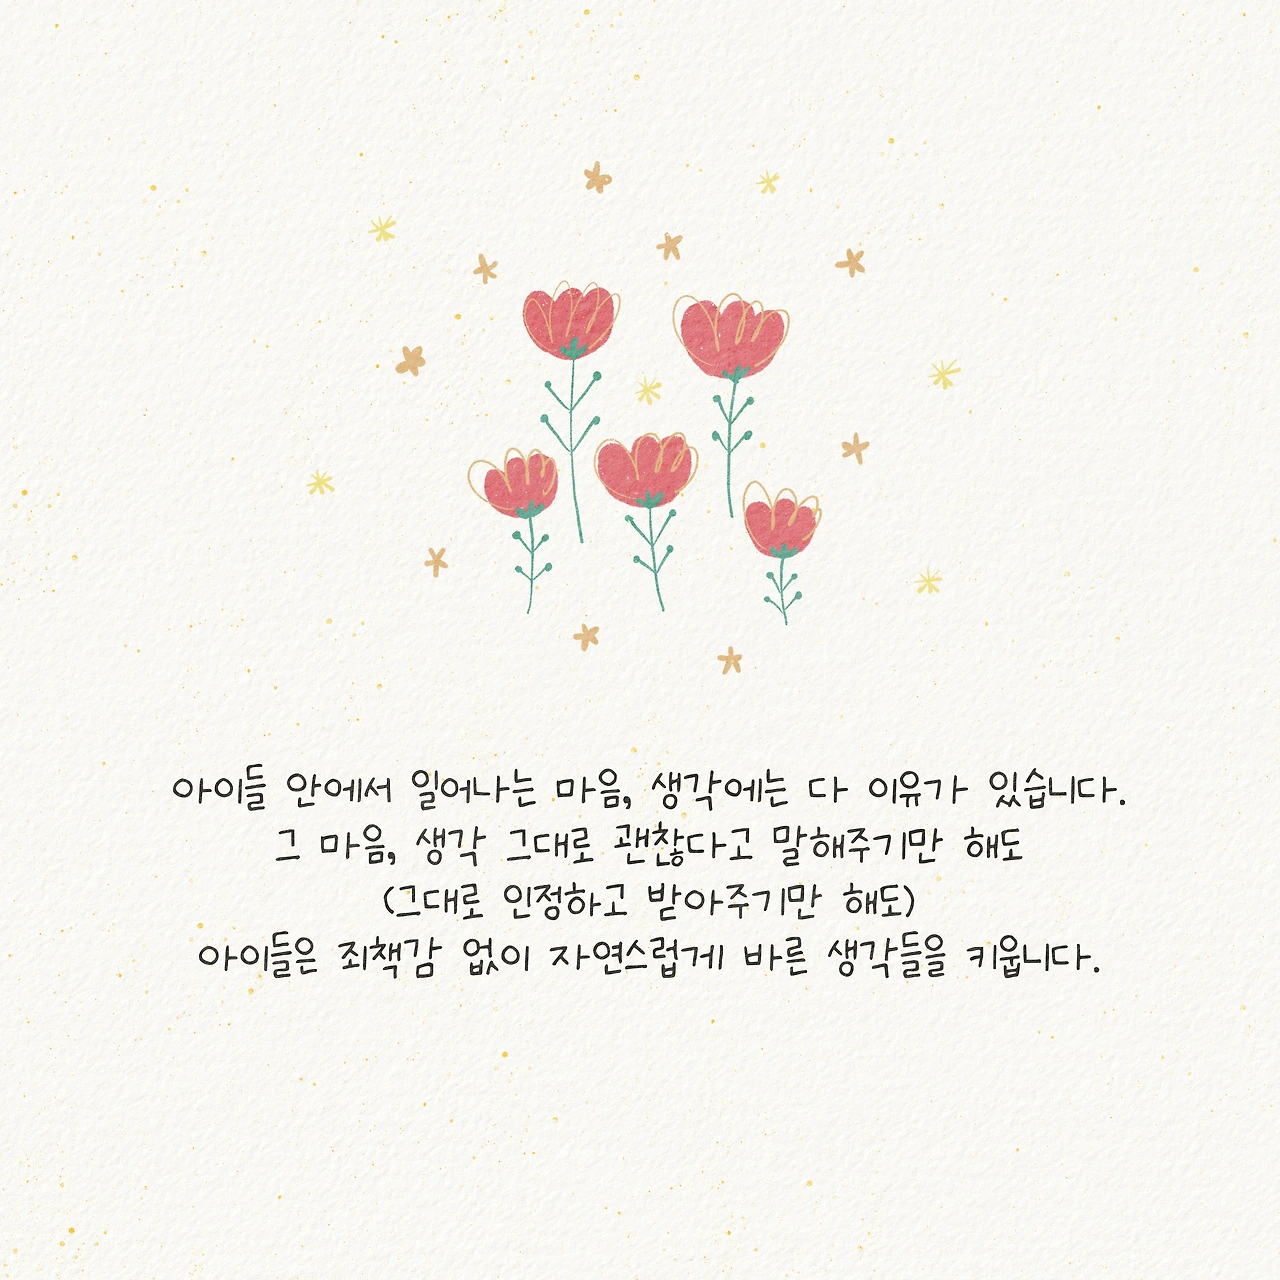 아이들 안에서 일어나는 마음, 생각에는 다 이유가 있습니다.
그 마음, 생각 그대로 괜찮다고 말해주기만 해도
(그대로 인정하고 받아주기만 해도)
아이들은 죄책감 없이 자연스럽게 바른 생각들을 키웁니다.